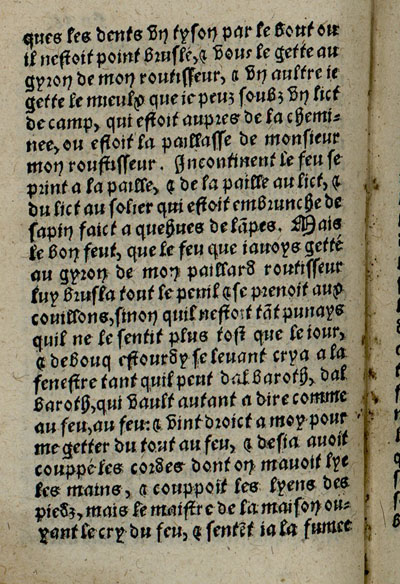 ques les dents vng tyson par le bout ou
il nestoit point brusle, & vous le gette au
gyron de mon routisseur, & vng aultre ie
gette le mieulx que ie peuz soubz vng lict
de camp, qui estoit aupres de la chemi-
nee, ou estoit la paillasse de monsieur
mon roustisseur. Incontinent le feu se
print a la paille, & de la paille au lict, &
du lict au solier qui estoit embrunche de
sapin faict a quehues de lãpes. Mais
le bon feut, que le feu que iauoys gette
au gyron de mon paillard routisseur
luy brusla tout le penil & se prenoit aux
couillons, sinon quil nestoit tãt punays
quil ne le sentit plus tost que le iour,
& debouq estourdy se leuant crya a la
fenestre tant quil peut dal baroth, dal
baroth, qui vault autant a dire comme
au feu, au feu: & vint droict a moy pour
me getter du tout au feu, & desia auoit
couppe les cordes dont on mauoit lye
les mains, & couppoit les lyens des
piedz, mais le maistre de la maison ou-
yant le cry du feu, & sentẽt ia la fumee